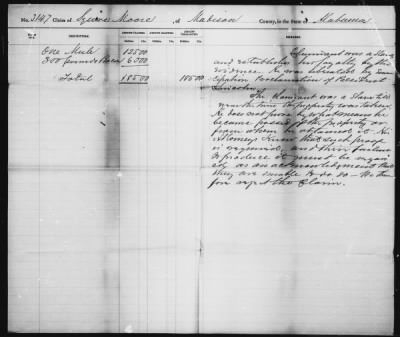 No. 3147 Claim of George Moore, of Madison County, in the State of Alabama
No. of Item.
DESCRIPTION.
AMOUNT CLAIMED.
AMOUNT ALLOWED.
AMOUNT DISALLOWED.
REMARKS.
Dollars. Cts. Dollars. Cts. Dollars. Cts.
One Mule 125 00
300 pounds Bacon 60 00
Total 185 00 185 00
Claimant was a slave
and establishes his loyalty by the
evidence. He was liberated by
Proclamation of President
Lincoln.
The claimant was a slave till
near the time the property was taken.
He does not prove by what means he
became possessed of the property or
from whom he obtained it. His
attorneys know that such proof
is required, and their failure
to produce it must be
as an acknowledgment that
they are unable to do so - We there
fore reject the claim.